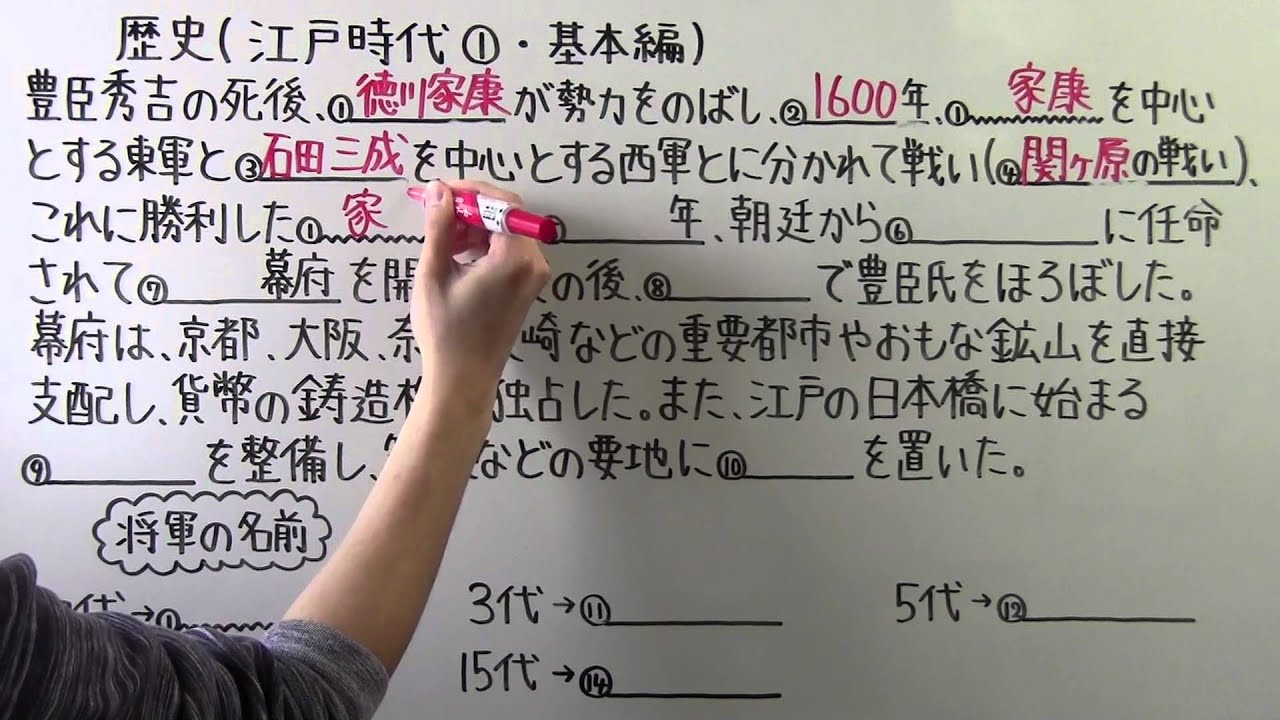 歴史(江戸時代①・基本編)
豊臣秀吉の死後、①徳川家康が勢力をのばし、②1600年、①家康を中心
とする東軍と③石田三成を中心とする西軍とに分かれて戦い(④関ヶ原の戦い)、
これに勝利した①家 年、朝廷から⑥ に任命
されて⑦ 幕府を開 の後、⑧ で豊臣氏をほろぼした。
幕府は、京都、大阪、奈 崎などの重要都市やおもな鉱山を直接
支配し、貨幣の鋳造 独占した。また、江戸の日本橋に始まる
⑨ を整備し、 などの要地に⑩ を置いた。
将軍の名前
代→① 3代→⑪ 5代→⑫
15代→⑭